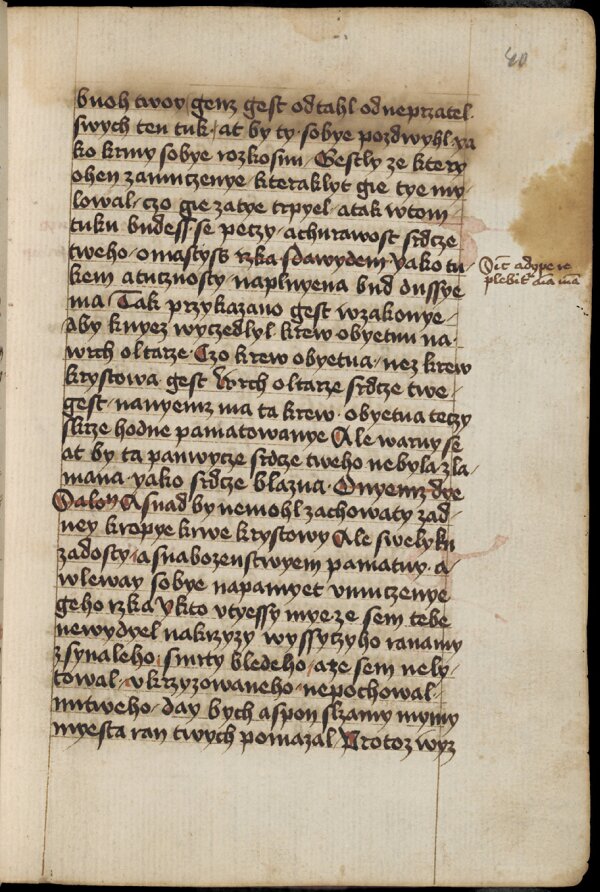 40
buoh twoy genz gest odtahl odneprzatel
swych ten tuk / at by ty sobye pozdwyhl ya
ko krmy sobye rozkossni / Gestly ze ktery
ohen zanmczenye / kteraklyt gie tye my
lowal / czo gie zatye trpyel / atak wtom
tuku budess se peczy / achurawost srdcze
tweho / omastyss rzka sdawydem / yako tu
kem atucznosty / naplnyena bud dussye
ma Tak przykazano gest wzakonye /
Aby knyez wyczedlyl krew obyetnu na
wrch oltarze Czo krew obyetna / nez krew
krystowa gest Wrch oltarze srdcze twe
gest / nanyemz ma ta krew obyetna teczy
skrze hodne pamatowanye Ale waruy se
at by ta panwycze srdcze tweho nebyla zla
mana / yako srdcze blazna Onyemz dye
Salon Asnad by nemohl zachowaty zad
ney kropye krwe krystowy Ale swelyku
zadosty / asnabozenstwyem pamatuy a
wleway sobye napamyet vmuczenye
geho rzka Vkto vtyessy mye ze sem tebe
newydyel nakrzyzy wyssyczyho ranamy
zsynaleho / smrty bledeho / aze sem nely
towal / vkrzyzowaneho / nepochowal
mrtweho / day bych aspon slzamy mymy
myesta ran twych pomazal / Protoz wyz
Sicut adype re
pleatur anima mea